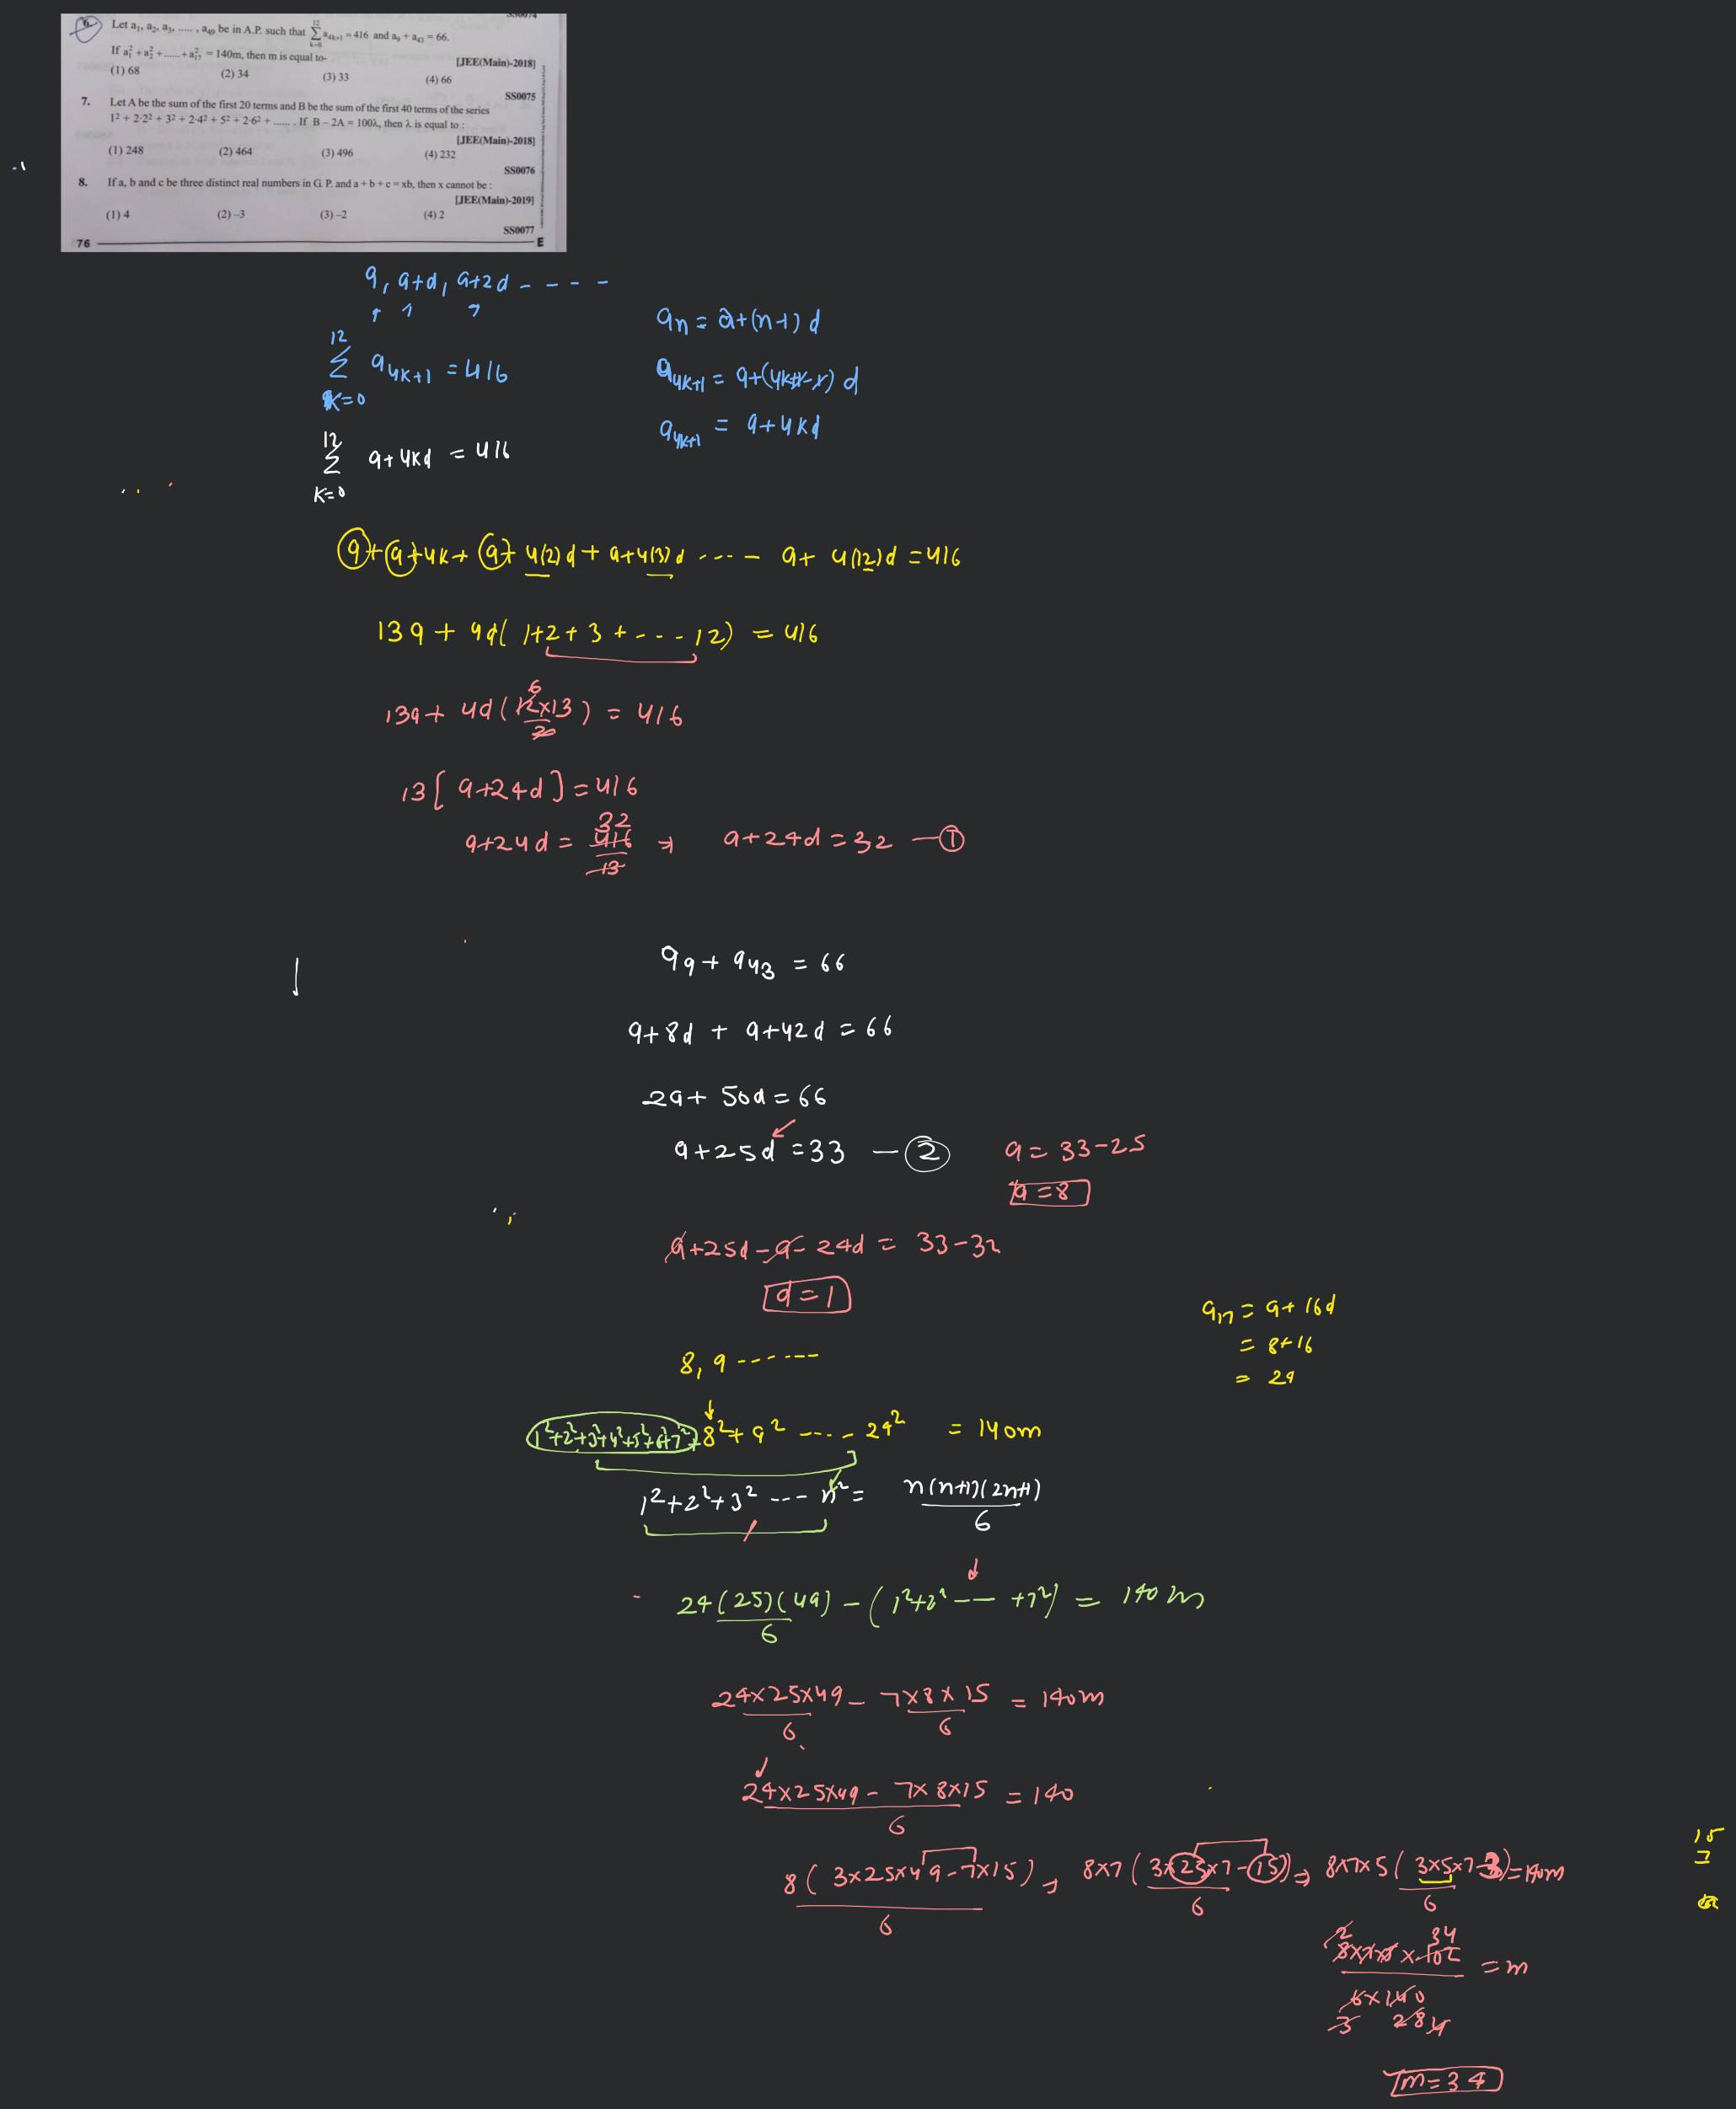 SS0074
6. Let a₁, a₂, a₃, ..... , a₄₉ be in A.P. such that ∑_{k=0}^{12} a₄ₖ₊₁ = 416 and a₉ + a₄₃ = 66.
If a₁² + a₂² + ...... + a₁₇² = 140m, then m is equal to-
[JEE(Main)-2018]
(1) 68 (2) 34 (3) 33 (4) 66
SS0075
7. Let A be the sum of the first 20 terms and B be the sum of the first 40 terms of the series
1² + 2·2² + 3² + 2·4² + 5² + 2·6² + ...... . If B – 2A = 100λ, then λ is equal to :
[JEE(Main)-2018]
(1) 248 (2) 464 (3) 496 (4) 232
SS0076
8. If a, b and c be three distinct real numbers in G. P. and a + b + c = xb, then x cannot be :
[JEE(Main)-2019]
(1) 4 (2) –3 (3) –2 (4) 2
SS0077
76 E
a, a+d, a+2d - - - -
aₙ = a+(n-1)d
∑_{k=0}^{12} a₄ₖ₊₁ = 416
a₄ₖ₊₁ = a+(4k+1-1)d
a₄ₖ₊₁ = a+4kd
∑_{k=0}^{12} a+4kd = 416
a+a+4k+a+4(2)d+a+4(3)d ---- a+4(12)d = 416
13a + 4d(1+2+3+----12) = 416
13a + 4d(12×13/2) = 416
6
13[a+24d] = 416
a+24d = 416/13 → a+24d = 32 — ①
32
a₉ + a₄₃ = 66
a+8d + a+42d = 66
2a + 50d = 66
a+25d = 33 — ② a = 33-25
a = 8
a+25d-a-24d = 33-32
d = 1
a₁₇ = a+16d
= 8+16
= 24
8, 9 ------
1²+2²+3²+4²+5²+6²+7²+8²+9² ---- 24² = 140m
1²+2²+3² --- n² = n(n+1)(2n+1)/6
24(25)(49)/6 - (1²+2² -- +7²) = 140m
24×25×49/6 - 7×8×15/6 = 140m
(24×25×49 - 7×8×15)/6 = 140
8(3×25×49-7×15)/6 → 8×7(3×25×7-15)/6 → 8×7×5(3×5×7-3)/6 = 140m
15
7
8×7×5×102/6×140 = m
2 34
3 28 4
m = 34